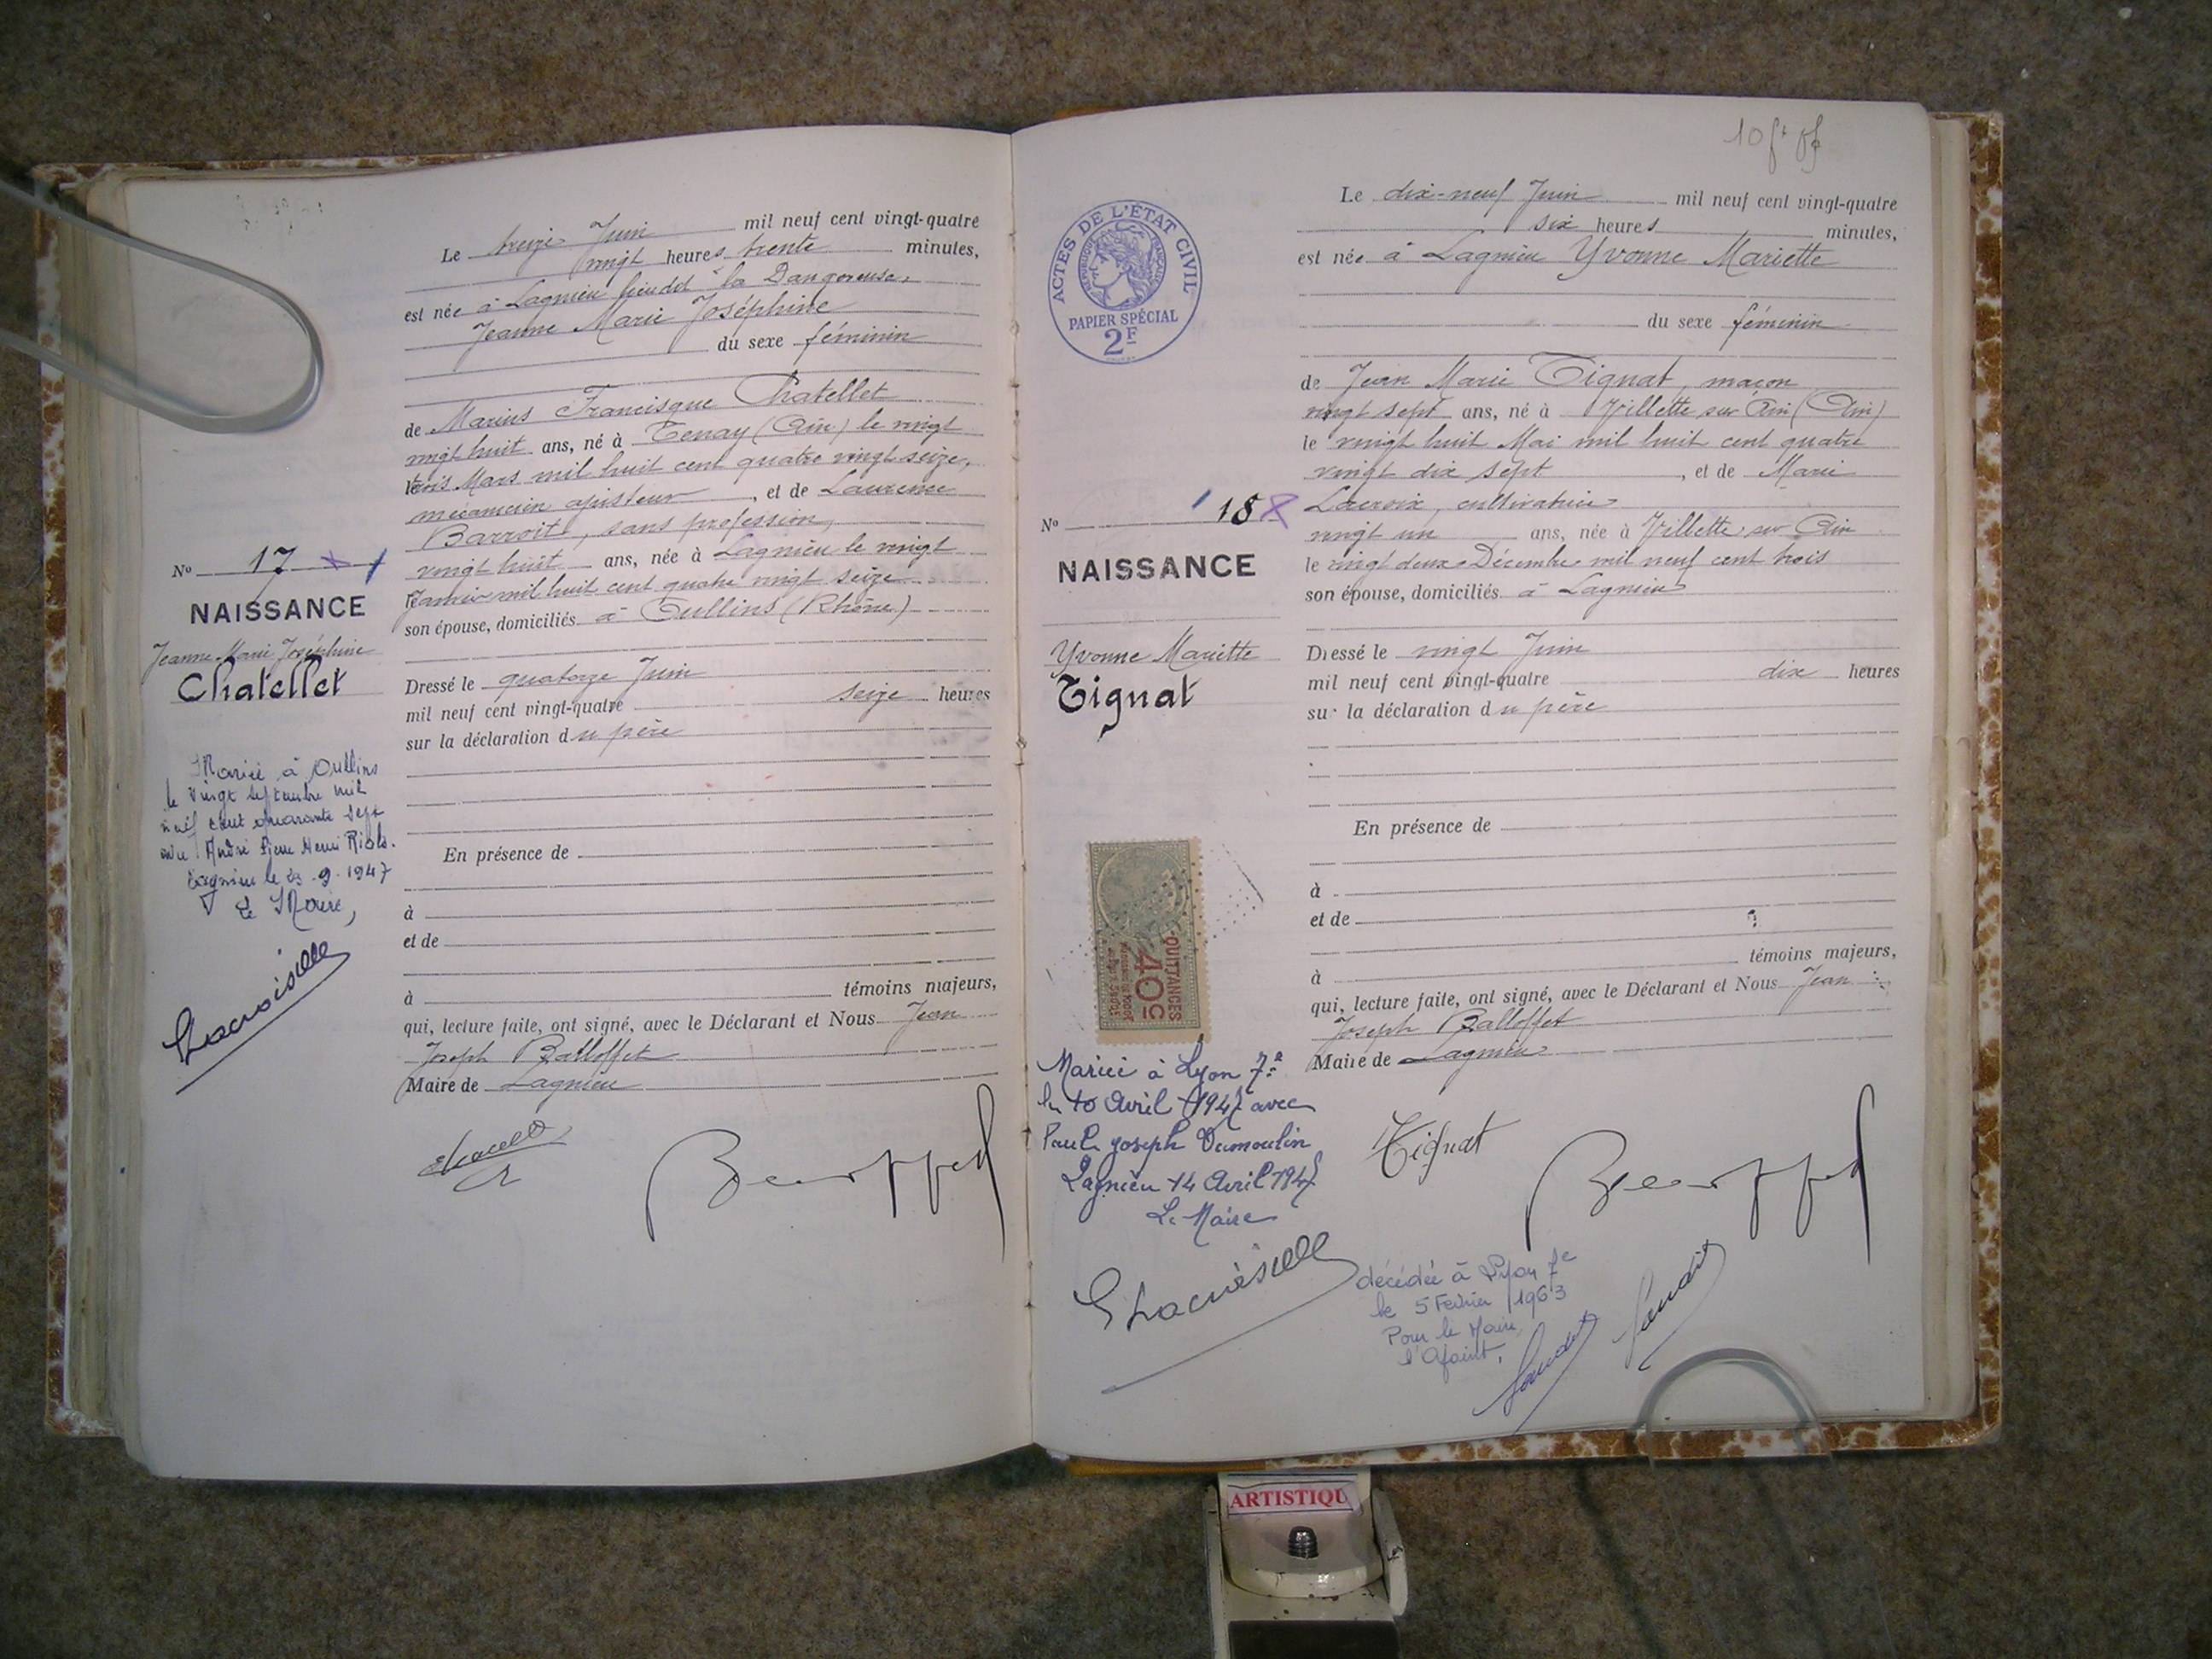 Le treize Juin mil neuf cent vingt-quatre
vingt heures trente minutes,
est née à Lagnieu lieudit "la Dangereuse,
Jeanne Marie Joséphine
du sexe féminin
de Marius Francisque Chatellet
vingt huit ans, né à Tenay (Ain) le vingt
trois Mars mil huit cent quatre vingt seize,
mécanicien ajusteur, et de Laurence
Barroit, sans profession,
vingt huit ans, née à Lagnieu le vingt
Janvier mil huit cent quatre vingt seize
son épouse, domiciliés à Oullins (Rhône)
Dressé le quatorze Juin
mil neuf cent vingt-quatre seize heures
sur la déclaration du père
En présence de
à
et de
à témoins majeurs,
qui, lecture faite, ont signé, avec le Déclarant et Nous Jean
Joseph Balloffet
Maire de Lagnieu
No 17
NAISSANCE
Jeanne Marie Joséphine
Chatellet
Mariée à Oullins
le vingt septembre mil
neuf cent quarante sept
avec André Pierre Henri Riols.
Lagnieu le 23.9.1947
Le Maire,
10 ft
ACTES DE L'ÉTAT CIVIL
RÉPUBLIQUE FRANÇAISE
PAPIER SPÉCIAL
2F
Le dix-neuf Juin mil neuf cent vingt-quatre
six heures minutes,
est née à Lagnieu Yvonne Mariette
du sexe féminin
de Jean Marie Tignat, maçon
vingt sept ans, né à Villette sur Ain (Ain)
le vingt huit Mai mil huit cent quatre
vingt dix sept, et de Marie
Lacroix, cultivatrice
vingt un ans, née à Villette sur Ain
le vingt deux Décembre mil neuf cent trois
son épouse, domiciliés à Lagnieu
Dressé le vingt Juin
mil neuf cent vingt-quatre dix heures
sur la déclaration du père
En présence de
à
et de
à témoins majeurs,
qui, lecture faite, ont signé, avec le Déclarant et Nous Jean
Joseph Balloffet
Maire de Lagnieu
No 18
NAISSANCE
Yvonne Mariette
Tignat
QUITTANCES
40c
Mariée à Lyon 7e
le 10 Avril 1947 avec
Paul Joseph Dumoulin
Lagnieu 14 Avril 1947
Le Maire
Tignat
décédée à Lyon 7e
le 5 Février 1963
Pour le Maire,
l'Adjoint,
ARTISTIQU